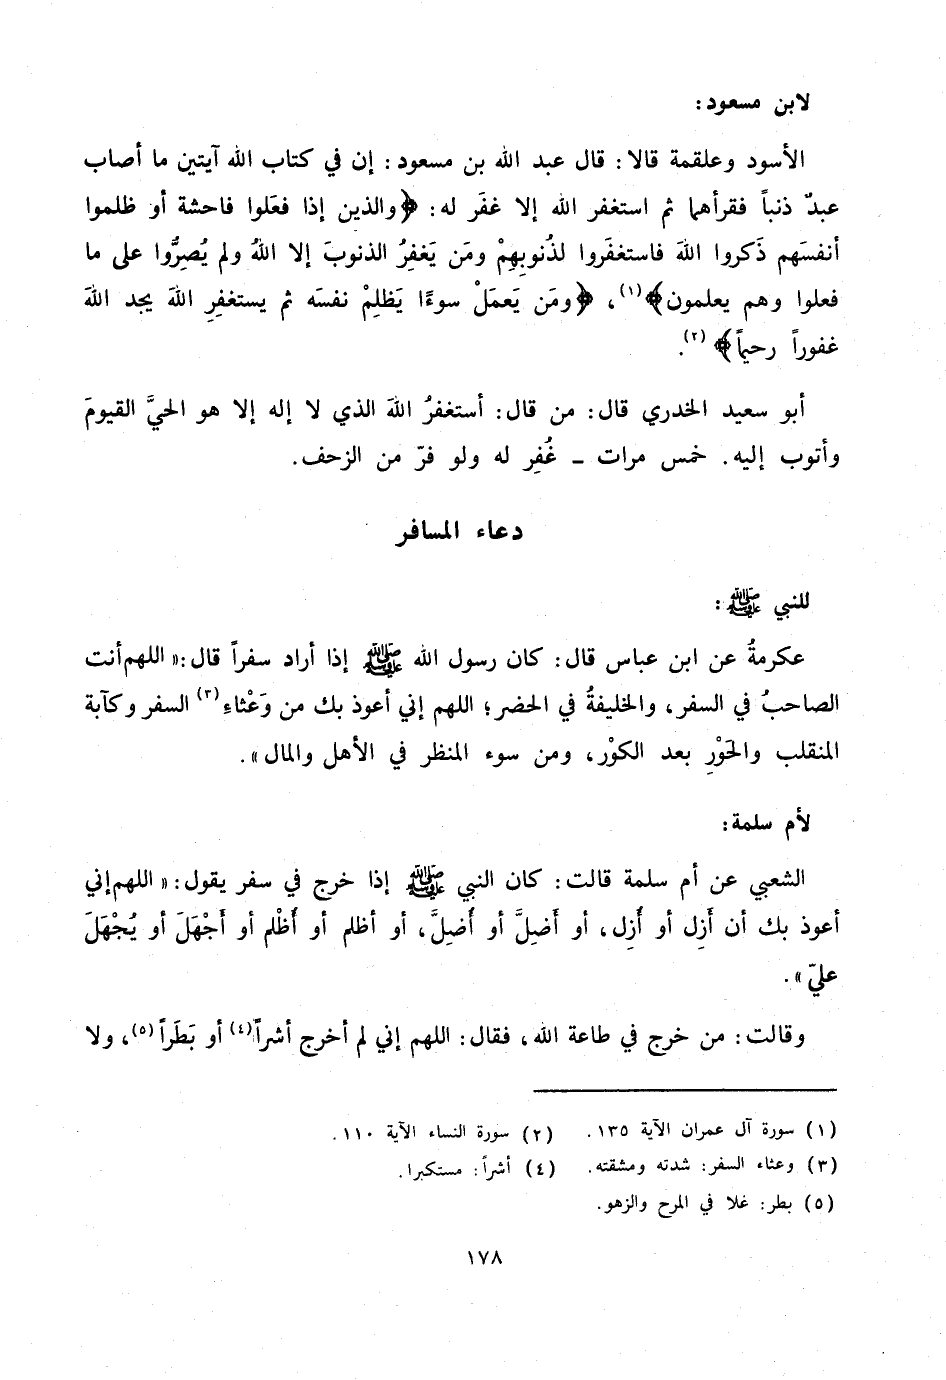 لابن مسعود:
الأسود وعلقمة قالا: قال عبد الله بن مسعود: إن في كتاب الله آيتين ما أصاب
عبدٌ ذنباً فقرأهما ثم استغفر الله إلا غفَر له: ﴿والذين إذا فعَلوا فاحشة أو ظلموا
أنفسَهم ذَكروا اللهَ فاستغفَروا لذُنوبِهِمْ ومَن يَغفِرُ الذنوبَ إلا اللهُ ولم يُصِرُّوا على ما
فعلوا وهم يعلمون﴾(١)، ﴿ومَن يَعمَلْ سوءًا يَظلِمْ نفسَه ثم يستغفرِ اللهَ يجد اللهَ
غفوراً رحيماً﴾ (٢).
أبو سعيد الخدري قال: من قال: أستغفرُ اللهَ الذي لا إله إلا هو الحيَّ القيومَ
وأتوب إليه. خمس مرات ـ غُفِر له ولو فرّ من الزحف.
دعاء المسافر
للنبي ﷺ:
عكرمةُ عن ابن عباس قال: كان رسول الله ﷺ إذا أراد سفراً قال:« اللهم أنت
الصاحبُ في السفر، والخليفةُ في الحضر؛ اللهم إني أعوذ بك من وَعْثاءِ(٣) السفر وكآبة
المنقلب والحَوْرِ بعد الكوْر، ومن سوء المنظر في الأهل والمال ».
لأم سلمة:
الشعبي عن أم سلمة قالت: كان النبي ﷺ إذا خرج في سفر يقول:« اللهم إني
أعوذ بك أن أَزِل أو أُزِل، أو أَضِلَّ أو أُضِلَّ، أو أظلم أو أُظْلم أو أَجْهَلَ أو يُجْهَلَ
عليّ ».
وقالت: من خرج في طاعة الله، فقال: اللهم إني لم أخرج أشراً(٤) أو بَطَراً(٥)، ولا
(١) سورة آل عمران الآية ١٣٥. (٢) سورة النساء الآية ١١٠.
(٣) وعثاء السفر: شدته ومشقته. (٤) أشراً: مستكبرا.
(٥) بطر: غلا في المرح والزهو.
١٧٨